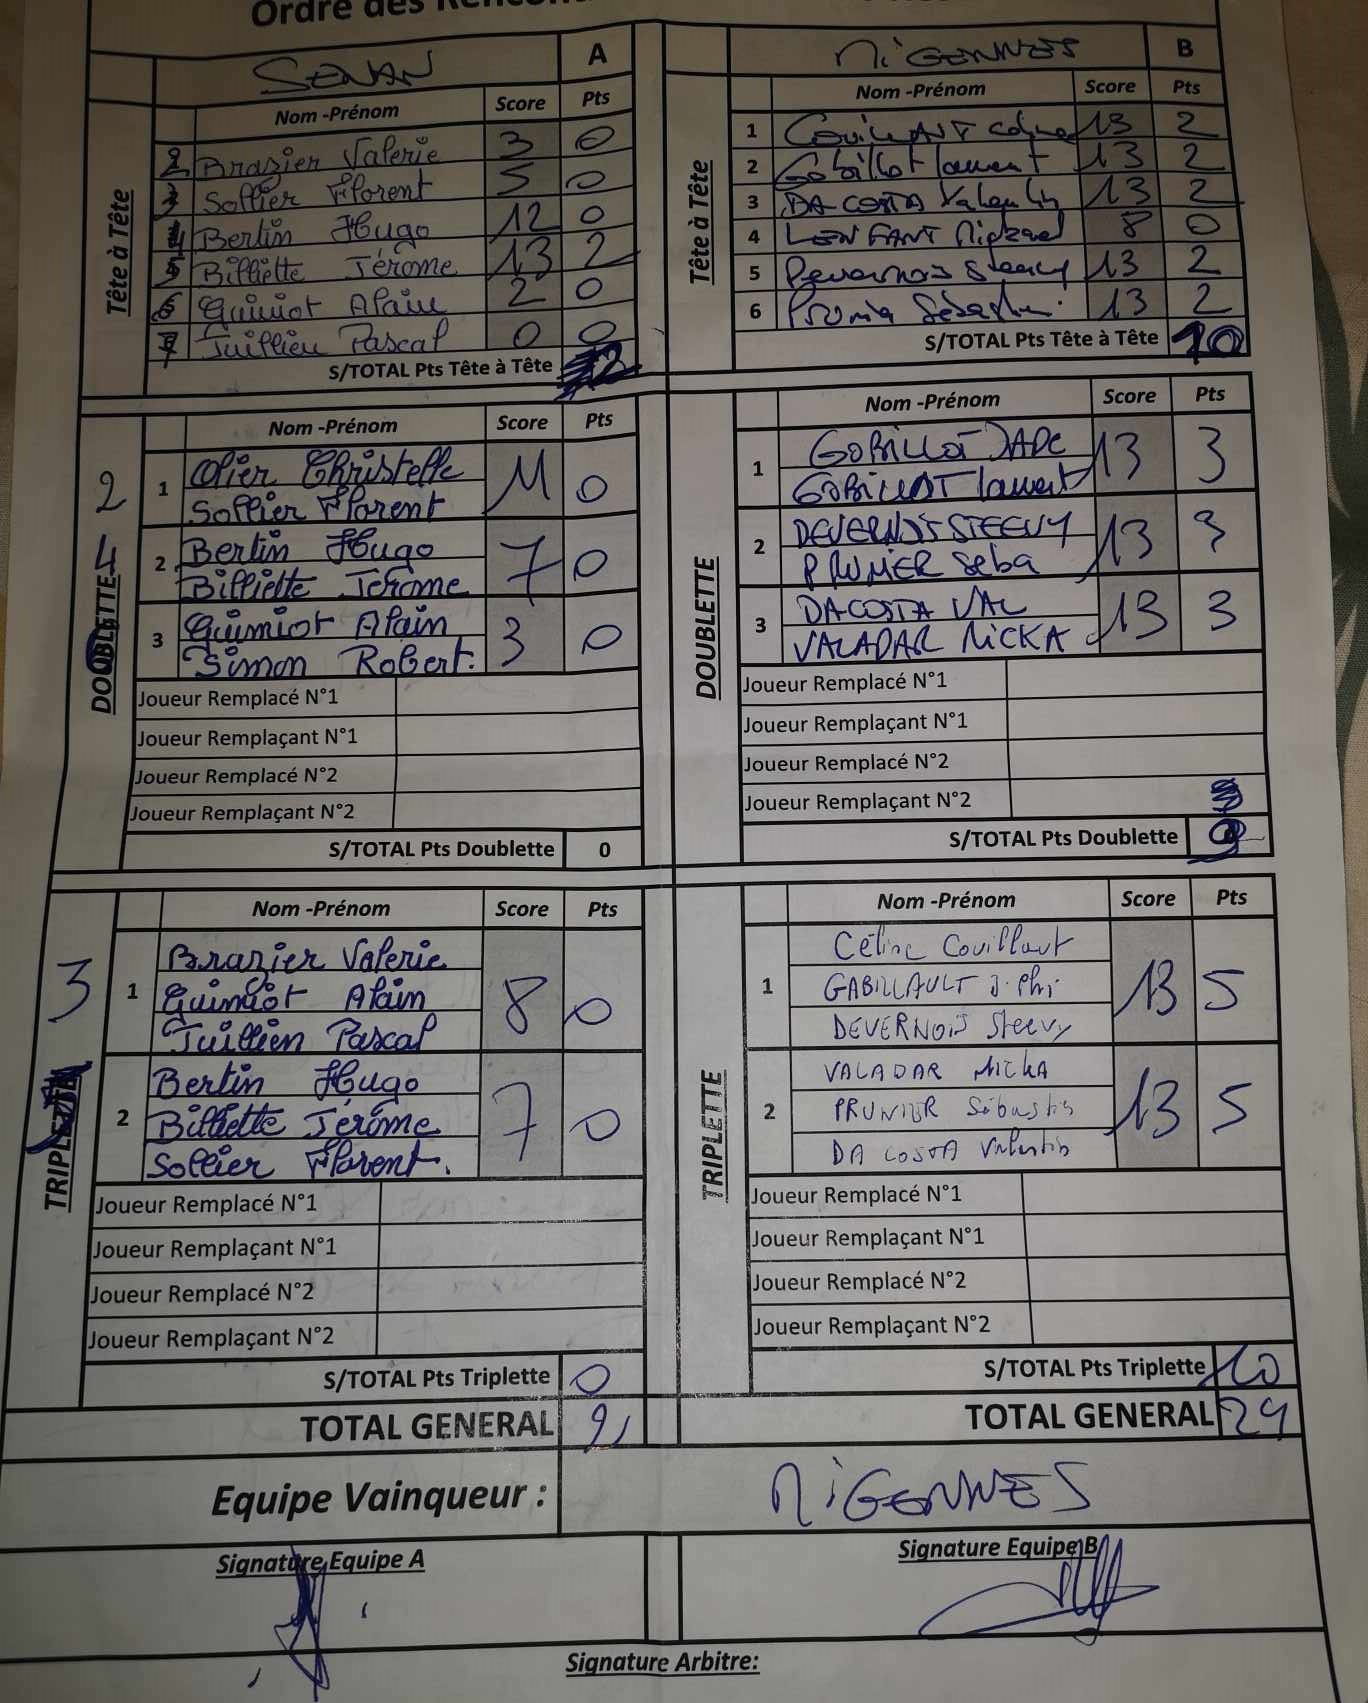 Ordre des
SENAN A
Nom -Prénom Score Pts
Tête à Tête
2 Brazier Valerie 3 0
3 Sollier Florent 5 0
4 Bertin Hugo 12 0
5 Billiette Jérôme 13 2
6 Guimiot Alain 2 0
7 Juillien Pascal 0 0
S/TOTAL Pts Tête à Tête 2
MiGENNES B
Nom -Prénom Score Pts
Tête à Tête
1 COUILLAUT Céline 13 2
2 Gobillot laurent 13 2
3 DA COSTA Valentin 13 2
4 LENFANT Mickael 8 0
5 Devernois Steevy 13 2
6 13 2
S/TOTAL Pts Tête à Tête 10
Nom -Prénom Score Pts
2
DOUBLETTE
1 Olier Christelle 11 0
Sollier Florent
2 Bertin Hugo 7 0
Billiette Jérôme
3 Guimiot Alain 3 0
Simon Robert.
Joueur Remplacé N°1
Joueur Remplaçant N°1
Joueur Remplacé N°2
Joueur Remplaçant N°2
S/TOTAL Pts Doublette 0
Nom -Prénom Score Pts
DOUBLETTE
1 GOBILLOT JADE 13 3
GOBILLOT laurent
2 DEVERNOIS STEEVY 13 3
PRUNIER Seba
3 DACOSTA VAL 13 3
VALADAR NiCKA
Joueur Remplacé N°1
Joueur Remplaçant N°1
Joueur Remplacé N°2
Joueur Remplaçant N°2
S/TOTAL Pts Doublette 9
Nom -Prénom Score Pts
3
TRIPLETTE
1 Brazier Valerie 8 0
Guimiot Alain
Juillien Pascal
2 Bertin Hugo 7 0
Billiette Jérôme
Sollier Florent.
Joueur Remplacé N°1
Joueur Remplaçant N°1
Joueur Remplacé N°2
Joueur Remplaçant N°2
S/TOTAL Pts Triplette 0
TOTAL GENERAL 2
Nom -Prénom Score Pts
TRIPLETTE
1 Céline Couillaut 13 5
GABILLAULT J. Phi
DEVERNOIS Steevy
2 VALADAR MICKA 13 5
PRUNIER Sébastien
DA COSTA Valentin
Joueur Remplacé N°1
Joueur Remplaçant N°1
Joueur Remplacé N°2
Joueur Remplaçant N°2
S/TOTAL Pts Triplette 10
TOTAL GENERAL 29
Equipe Vainqueur : MiGENNES
Signature Equipe A
Signature Equipe B
Signature Arbitre: